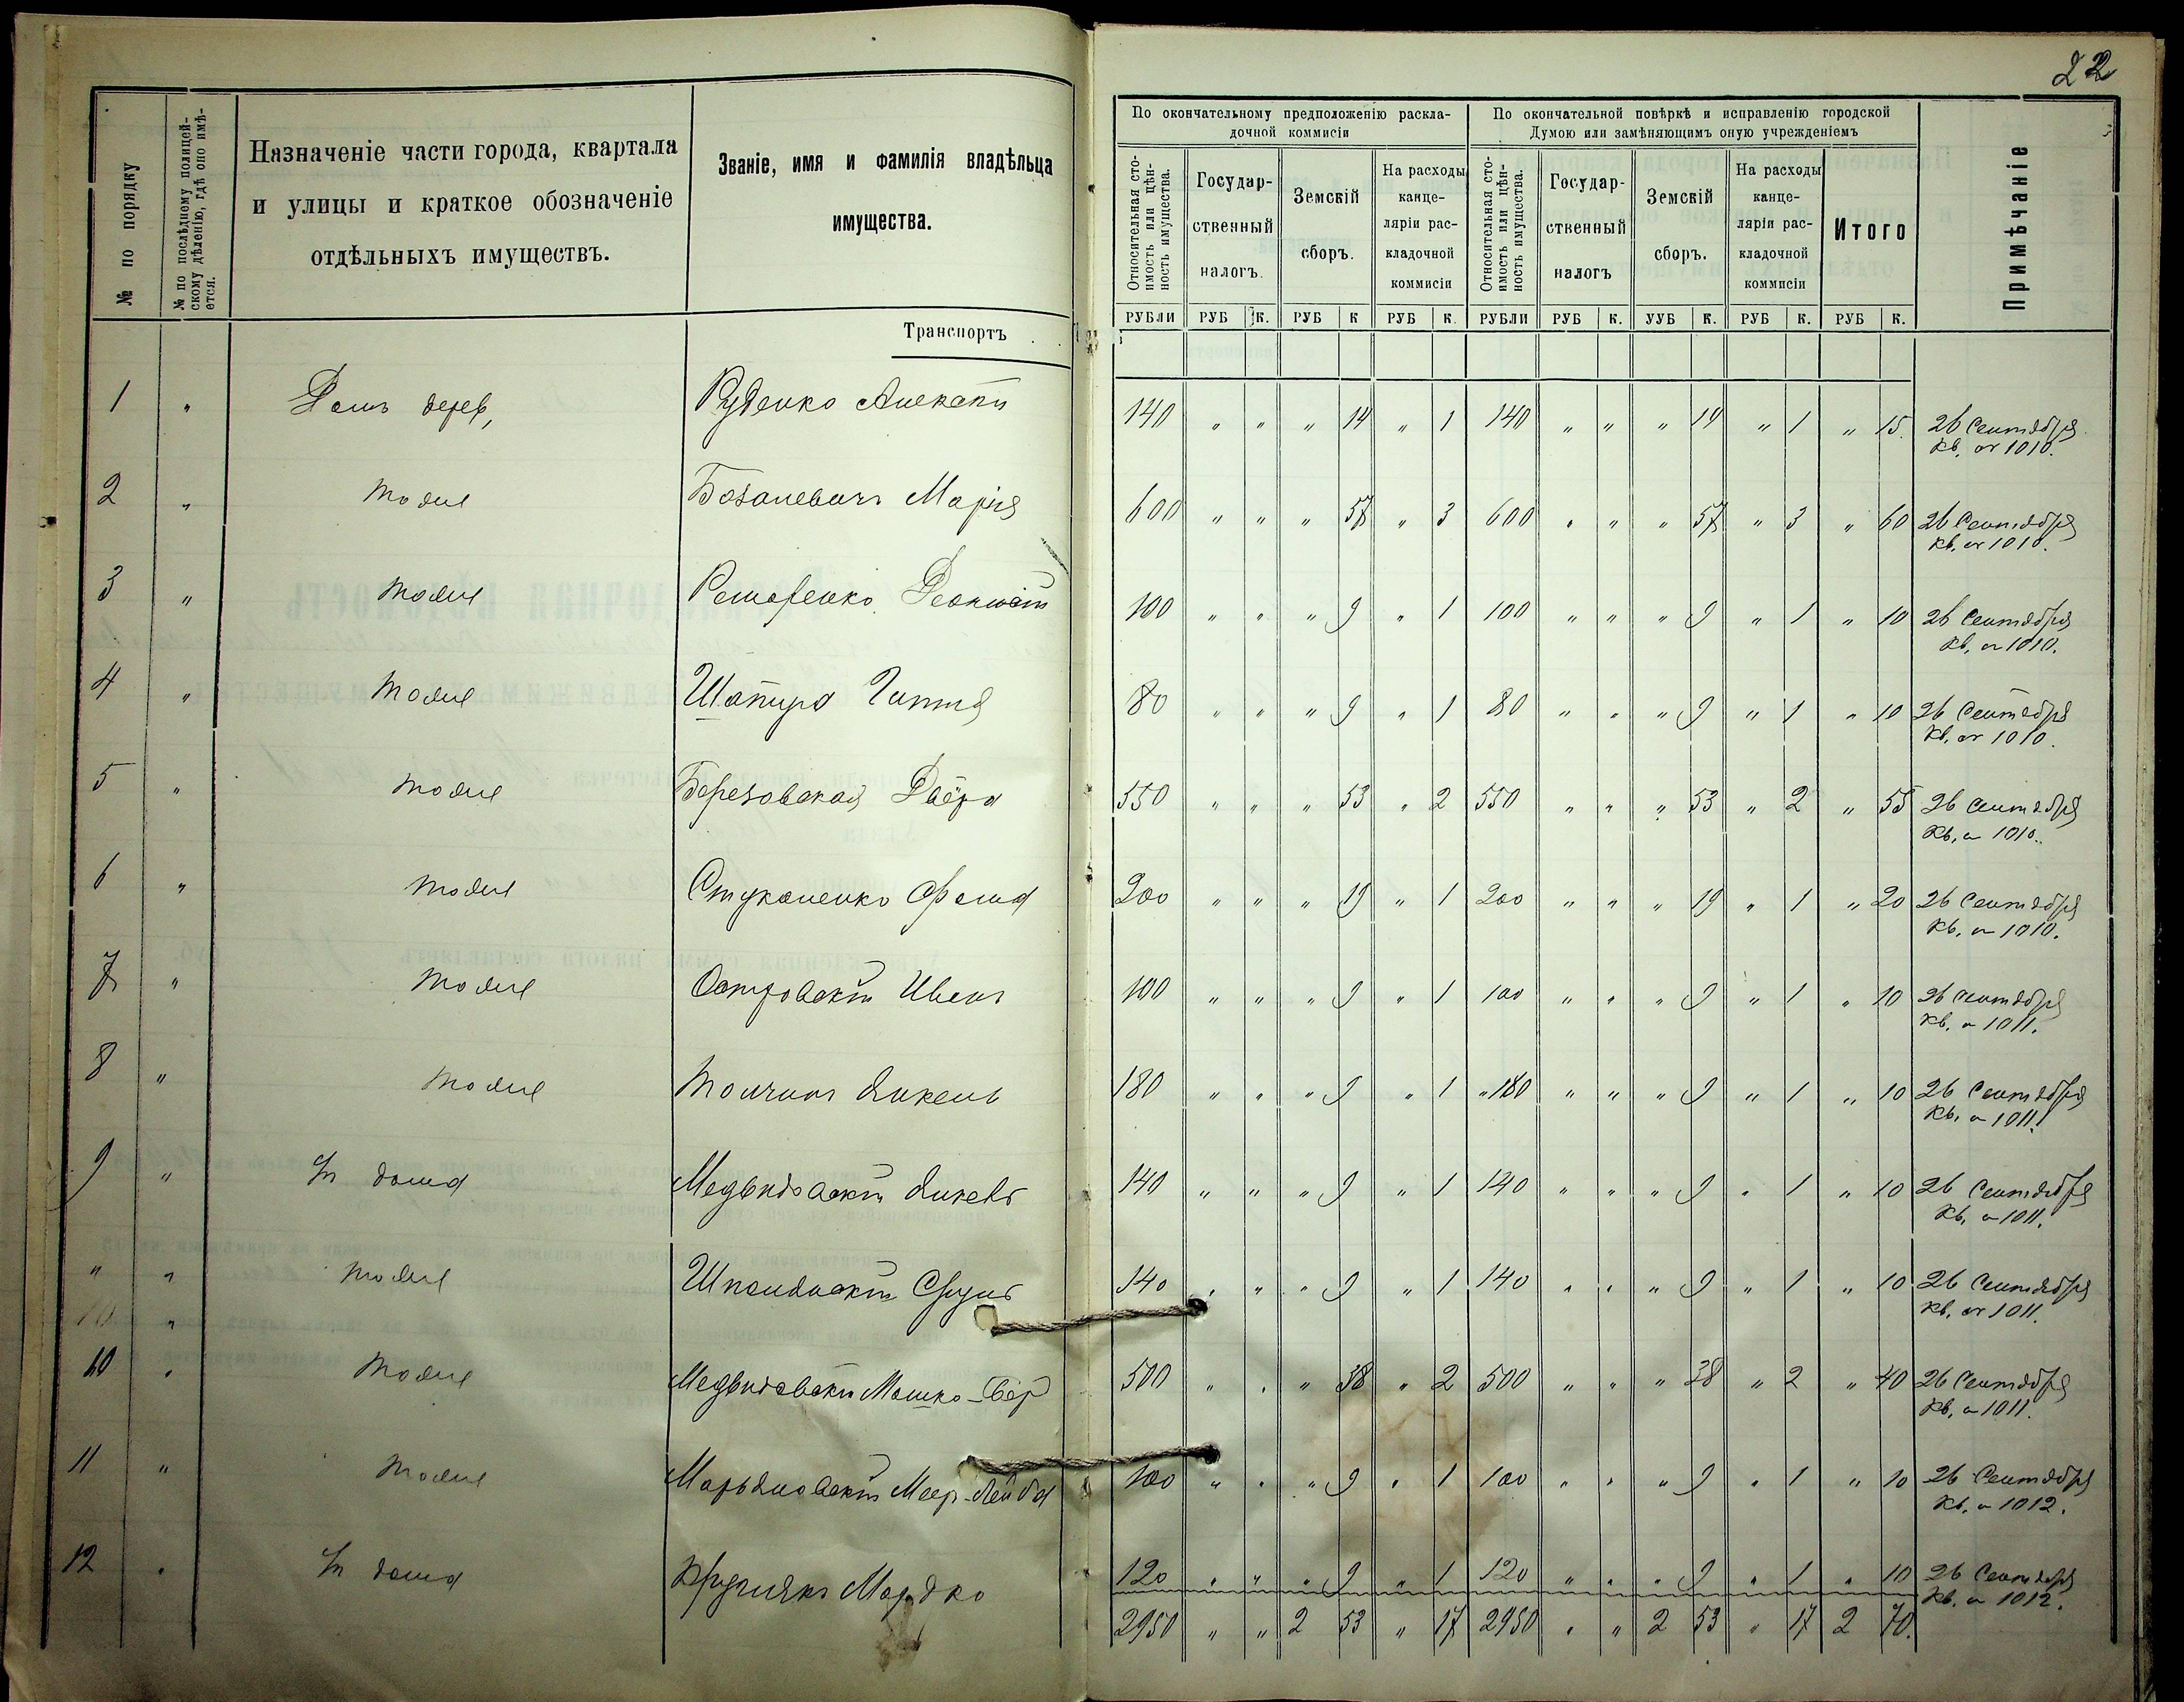 22
№ по порядку
№ по послѣднему полицей-
скому дѣленію, гдѣ оно имѣ-
ется.
Назначеніе части города, квартала
и улицы и краткое обозначеніе
отдѣльныхъ имуществъ.
Званіе, имя и фамилія владѣльца
имущества.
По окончательному предположенію раскла-
дочной коммисіи
По окончательной повѣркѣ и исправленію городской
Думою или замѣняющимъ оную учрежденіемъ
Относительная сто-
имость или цѣн-
ность имущества.
Государ-
ственный
налогъ.
Земскій
сборъ.
На расходы
канце-
ляріи рас-
кладочной
коммисіи
Относительная сто-
имость или цѣн-
ность имущества.
Государ-
ственный
налогъ
Земскій
сборъ.
На расходы
канце-
ляріи рас-
кладочной
коммисіи
Итого
Примѣчаніе
РУБЛИ РУБ К. РУБ К РУБ К. РУБЛИ РУБ К. УУБ К. РУБ К. РУБ К.
Транспортъ
1 " Домъ дерев, Руденко Алексѣй 140 " " " 14 " 1 140 " " " 14 " 1 " 15 26 Сентября
кв. 1010.
2 " тоже Марія 600 " " " 57 " 3 600 " " " 57 " 3 " 60 26 Сентября
кв. 1010.
3 " тоже 100 " " " 9 " 1 100 " " " 9 " 1 " 10 26 Сентября
кв. 1010.
4 " тоже Шапиро 80 " " " 9 " 1 80 " " " 9 " 1 " 10 26 Сентября
кв. 1010.
5 " тоже Березовская Двейра 550 " " " 53 " 2 550 " " " 53 " 2 " 55 26 Сентября
кв. 1010.
6 " тоже Стукаленко Фома 200 " " " 19 " 1 200 " " " 19 " 1 " 20 26 Сентября
кв. 1010.
7 " тоже Островскій Иванъ 100 " " " 9 " 1 100 " " " 9 " 1 " 10 26 Сентября
кв. 1011.
8 " тоже Янкель 180 " " " 9 " 1 " 180 " " " 9 " 1 " 10 26 Сентября
кв. 1011.
9 " ½ дома Медвидовскій Янкель 140 " " " 9 " 1 140 " " " 9 " 1 " 10 26 Сентября
кв. 1011.
" " тоже Сруль 140 " " " 9 " 1 140 " " " 9 " 1 " 10 26 Сентября
кв. 1011.
10 " тоже Медвидовскій Мошко-Бер 500 " " " 38 " 2 500 " " " 38 " 2 " 40 26 Сентября
кв. 1011.
11 " тоже Марьяновскій Меер-Лейба 100 " " " 9 " 1 100 " " " 9 " 1 " 10 26 Сентября
кв. 1012.
12 " ½ дома Кругликъ Мордко 120 " " " 9 " 1 120 " " " 9 " 1 " 10 26 Сентября
кв. 1012.
2950 " " 2 53 " 17 2950 " " 2 53 " 17 2 70.